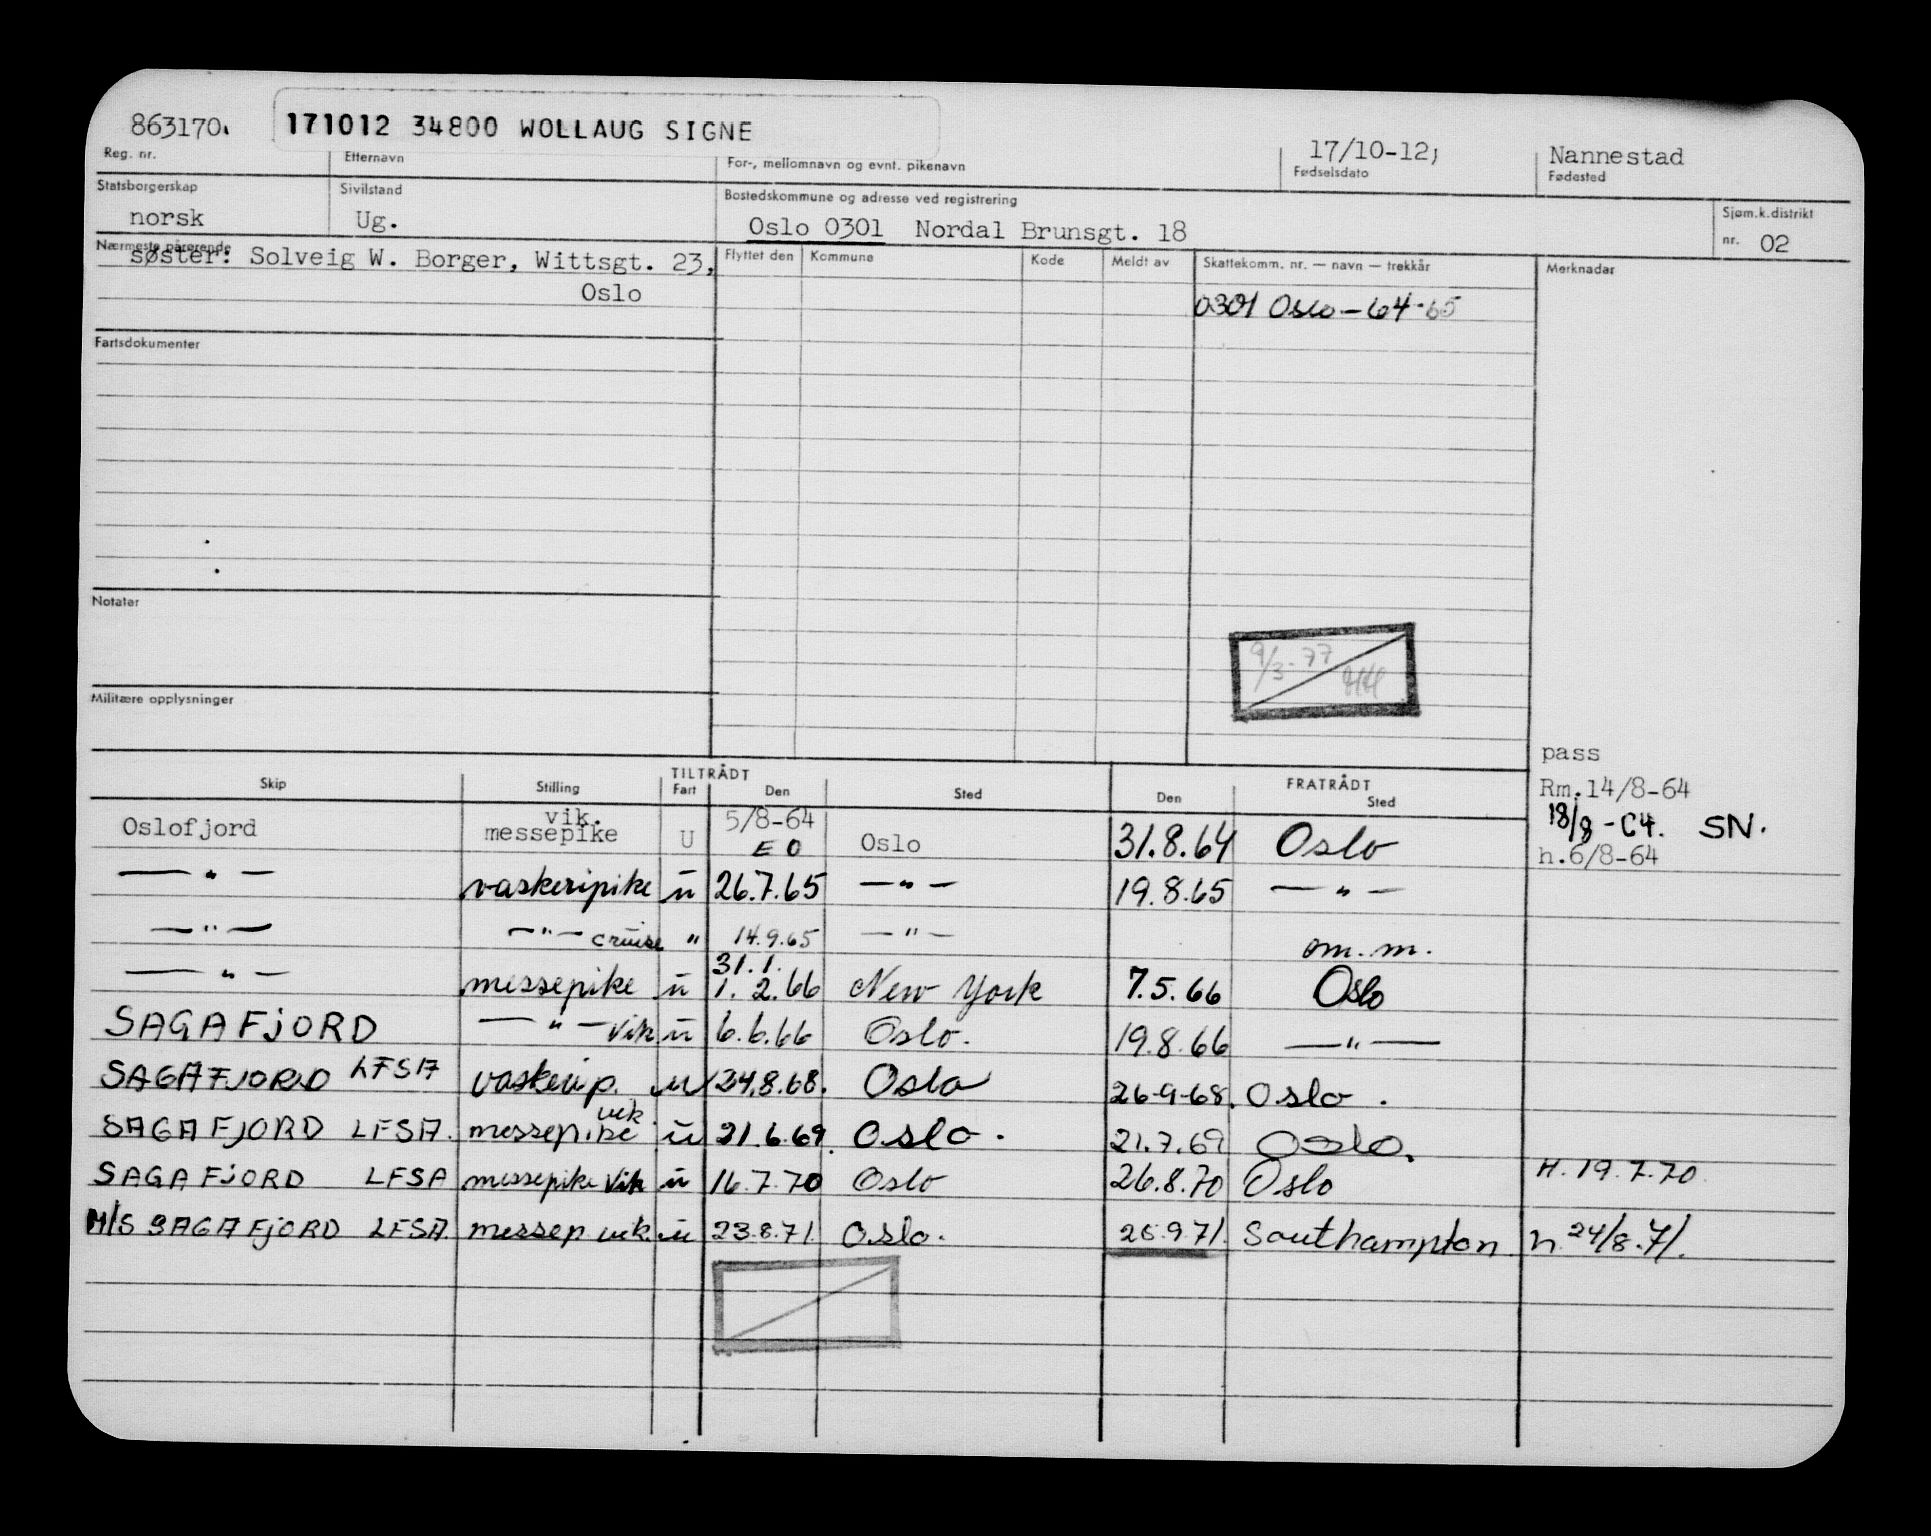 863170. 171012 34800 WOLLAUG SIGNE 17/10-12; Nannestad
Reg. nr. Etternavn For-, mellomnavn og evnt. pikenavn Fødselsdato Fødested
Statsborgerskap Sivilstand Bostedskommune og adresse ved registrering Sjøm.k.distrikt
norsk Ug. Oslo 0301 Nordal Brunsgt. 18 nr. 02
Nærmeste pårørende Flyttet den Kommune Kode Meldt av Skattekomm. nr. — navn — trekkår Merknader
søster: Solveig W. Borger, Wittsgt. 23,
Oslo 0301 Oslo - 64-65
Fartsdokumenter
Notater
9/3-77 HH
Militære opplysninger
pass
TILTRÅDT FRATRÅDT
Skip Stilling Fart Den Sted Den Sted
Rm.14/8-64
18/8-64. SN.
h.6/8-64
Oslofjord vik. messepike U 5/8-64 EO Oslo 31.8.64 Oslo
— " — vaskeripike u 26.7.65 — " — 19.8.65 — " —
— " — — " — cruise " 14.9.65 — " — om. m.
— " — messepike u 31.1. 1.2.66 New York 7.5.66 Oslo
SAGAFJORD — " — vik u 6.6.66 Oslo. 19.8.66 — " —
SAGAFJORD LFSA vaskerip. u 24.8.68. Oslo 26-9-68. Oslo.
SAGAFJORD LFSA. messepike vik u 21.6.69. Oslo. 21.7.69 Oslo.
SAGAFJORD LFSA messepike vik u 16.7.70 Oslo 26.8.70 Oslo H. 19.7.70.
M/S SAGAFJORD LFSA. messep vik. u 23.8.71. Oslo. 25.9.71. Southampton h 24/8.71.